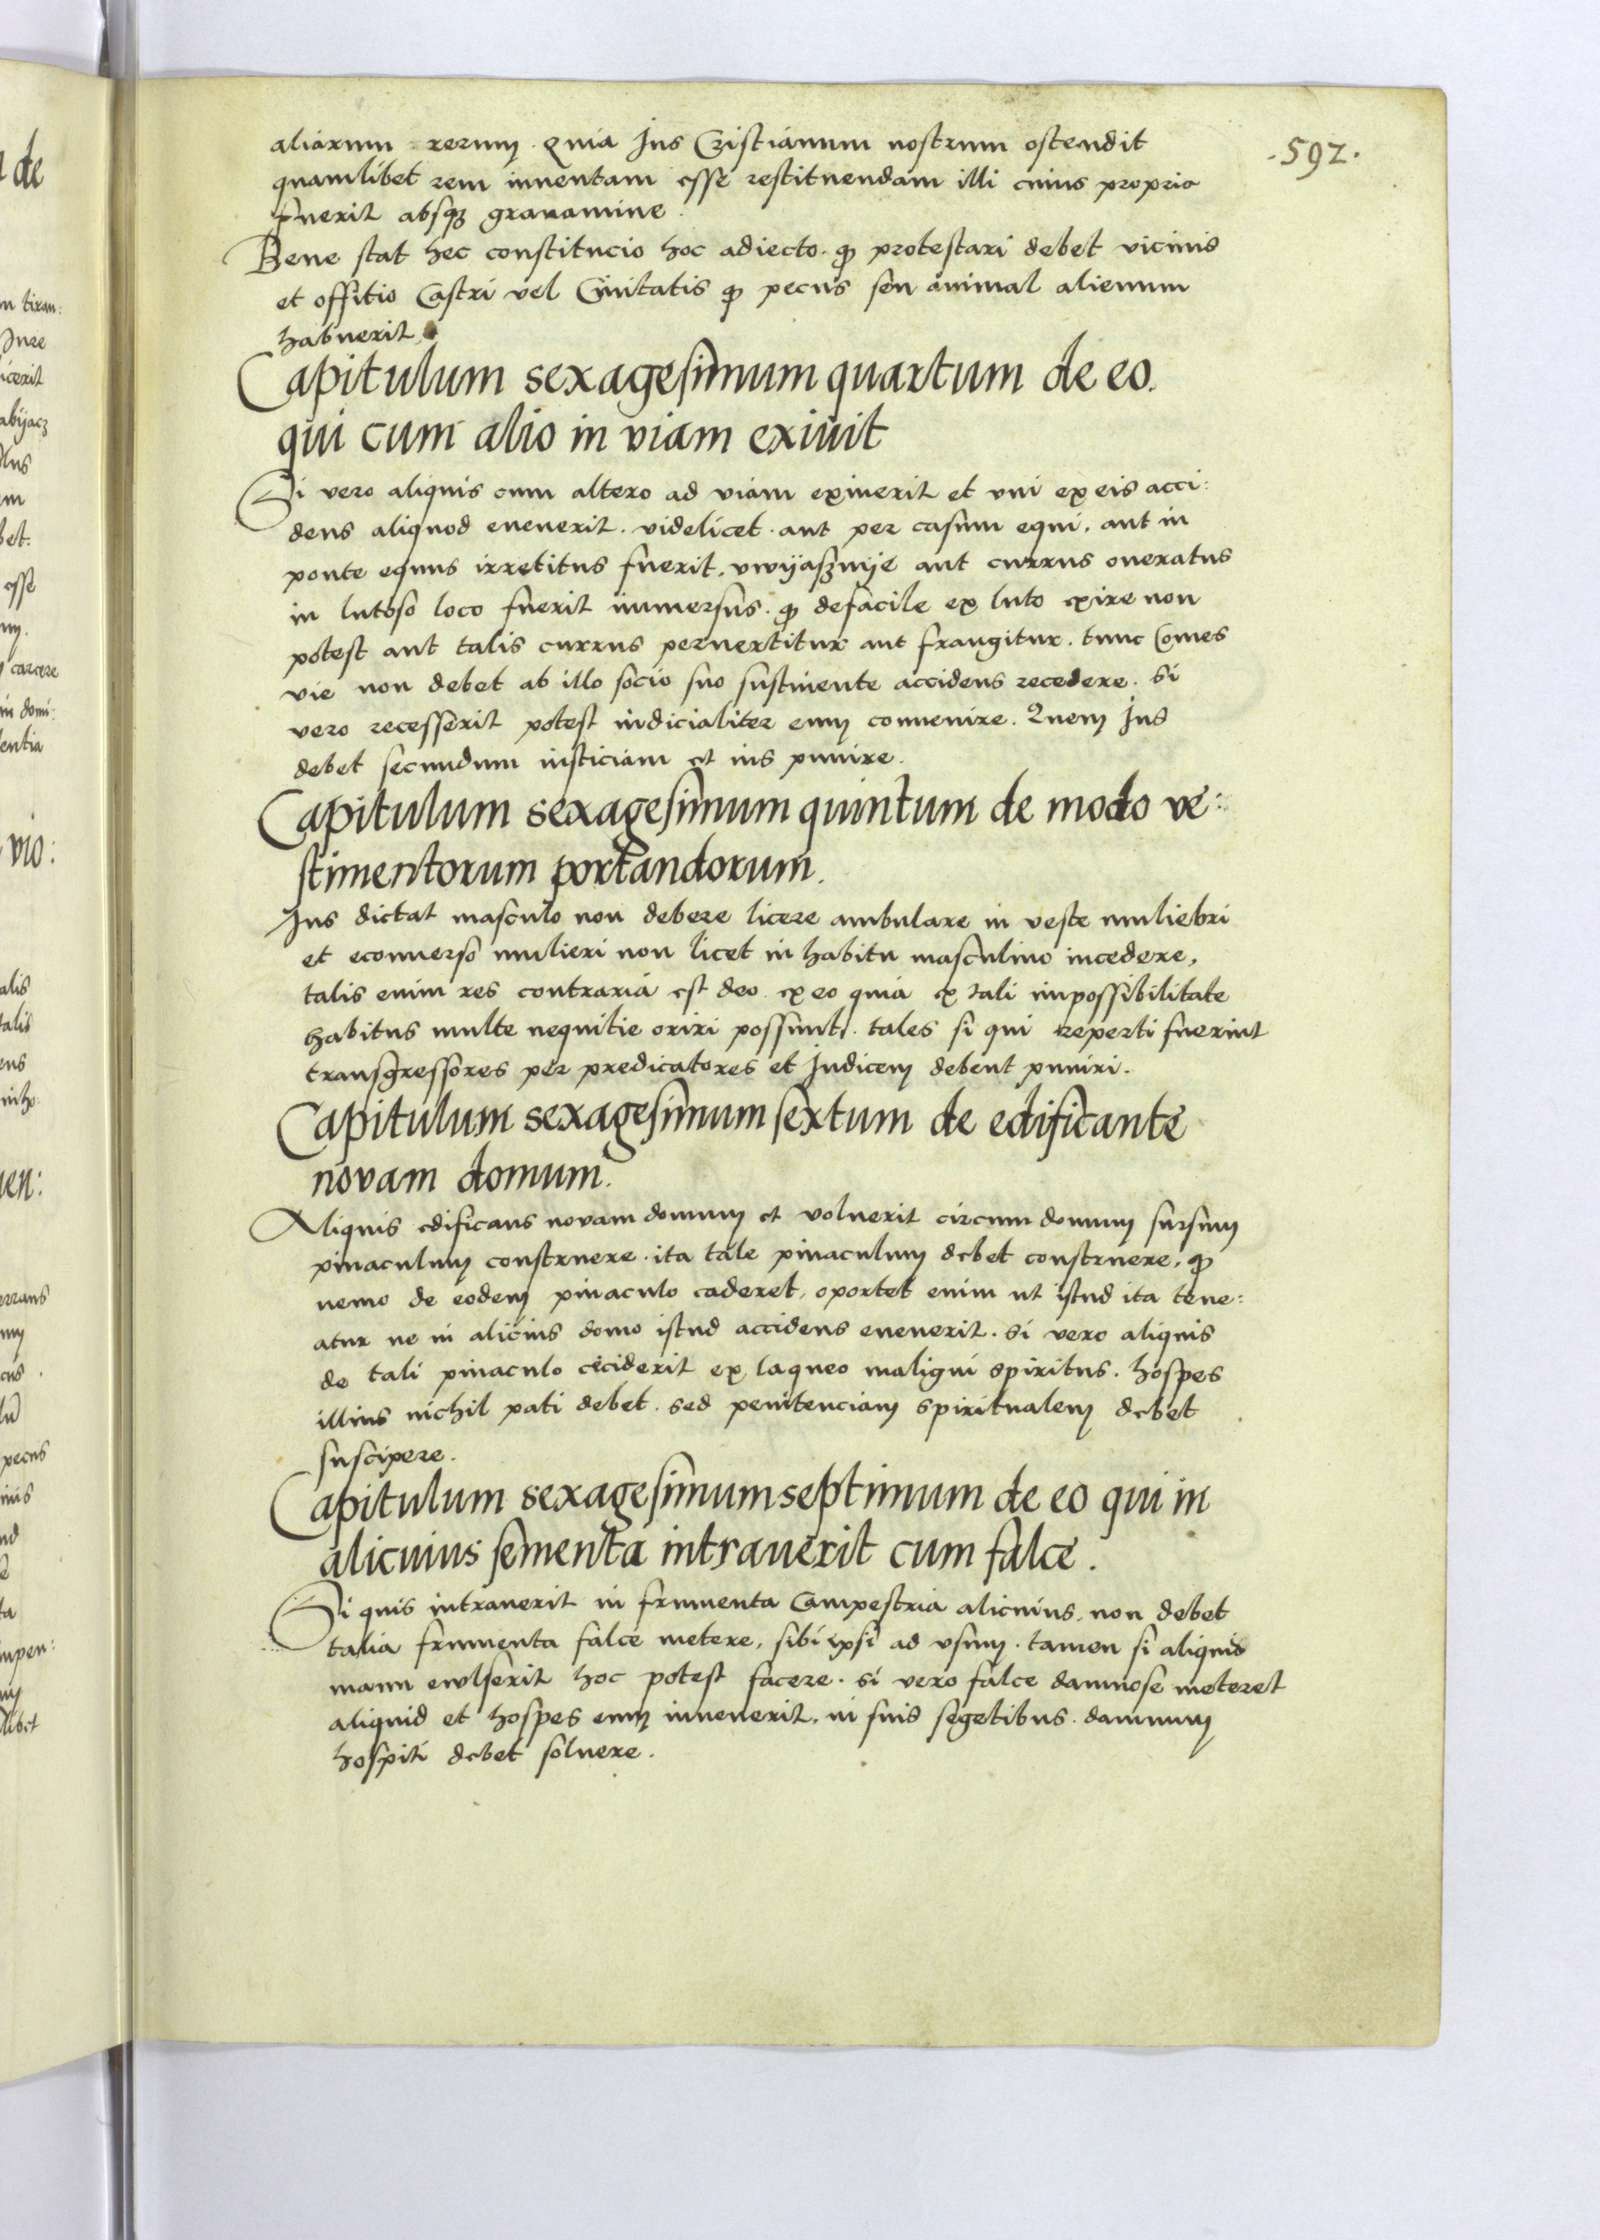 .592.
aliarum rerum. Quia Jus Cristianum nostrum ostendit
quamlibet rem inuentam esse restituendam illi cuius propria
fuerit absqz grauamine.
Bene stat hec constitucio hoc adiecto. qꝫ protestari debet vicinis
et offitio Castri vel Ciuitatis qꝫ pecus seu animal alienum
habuerit
Capitulum sexagesimum quartum de eo.
qui cum alio in viam exiuit
Si vero aliquis cum altero ad viam exiuerit et vni ex eis acci:
dens aliquod euenerit. videlicet. aut per casum equi, aut in
ponte equus irretitus fuerit, vwijaßnije aut currus oneratus
in lutoso loco fuerit immersus. qꝫ defacile ex luto exire non
potest aut talis currus peruertitur aut frangitur. tunc Comes
vie non debet ab illo socio suo sustinente accidens recedere. si
vero recesserit potest iudicialiter eum conuenire. Quem Jus
debet secundum iusticiam et ius punire.
Capitulum sexagesimum quintum de modo ve:
stimentorum portandorum.
Jus dictat masculo non debere licere ambulare in veste muliebri
et econuerso mulieri non licet in habitu masculino incedere,
talis enim res contraria est deo. ex eo quia ex tali impossibilitate
habitus multe nequitie oriri possunt. tales si qui reperti fuerint
transgressores per predicatores et Judicem debent puniri.
Capitulum sexagesimum sextum de edificante
novam domum.
Aliquis edificans novam domum et voluerit circum domum sursum
pinaculum construere. ita tale pinaculum debet construere, qꝫ
nemo de eodem pinaculo caderet, oportet enim ut istud ita tene:
atur ne in alicius domo istud accidens euenerit. si vero aliquis
de tali pinaculo ceciderit ex laqueo maligni spiritus. hospes
illius nichil pati debet. sed penitenciam spiritualem debet
suscipere.
Capitulum sexagesimum septimum de eo qui in
alicuius sementa intrauerit cum falce.
Si quis intrauerit in frumenta Campestria alicuius, non debet
talia frumenta falce metere, sibi ipsi ad vsum. tamen si aliquid
manu ewlserit hoc potest facere. si vero falce damnose meteret
aliquid et hospes eum inuenerit, in suis segetibus. damnum
hospiti debet soluere.